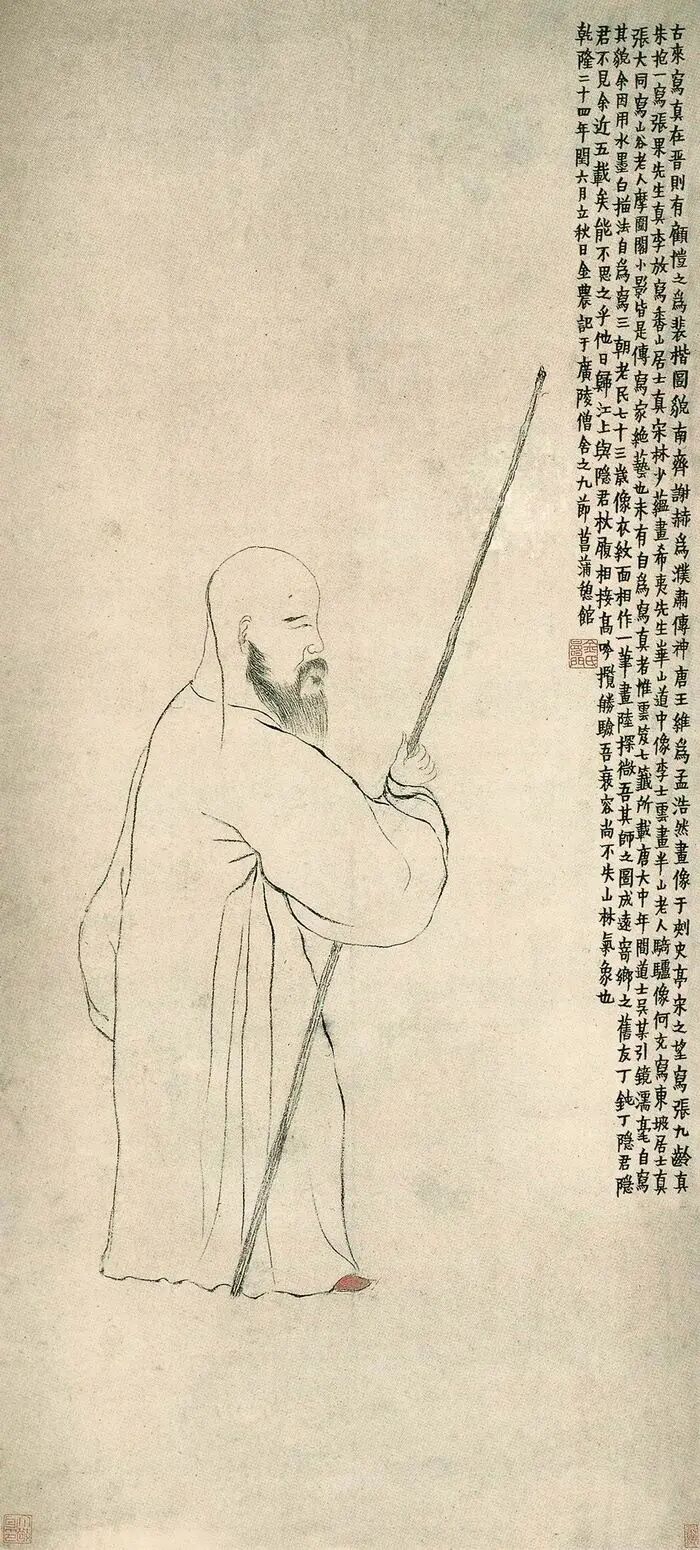 古來寫真在晉則有顧愷之爲裴楷圖貌南齊謝赫爲濮肅傳神唐王維爲孟浩然畫像于刺史亭宋之望寫張九齡真
朱抱一寫張果先生真李放寫香山居士真宋林少蘊畫希夷先生華山道中像李士雲畫半山老人騎驢像何充寫東坡居士真
張大同寫山谷老人摩圍閣小影皆是傳寫家絶藝也未有自爲寫真者惟雲笈七籤所載唐大中年間道士吳某引鏡濡毫自寫
其貌余因用水墨白描法自爲寫三朝老民七十三歲像衣紋面相作一筆畫陸探微吾其師之圖成遠寄鄉之舊友丁鈍丁隱君隱
君不見余近五載矣能不思之乎他日歸江上與隱君杖履相接高吟攬勝驗吾衰容尚不失山林氣象也
乾隆二十四年閏六月立秋日金農記于廣陵僧舍之九節菖蒲憩館